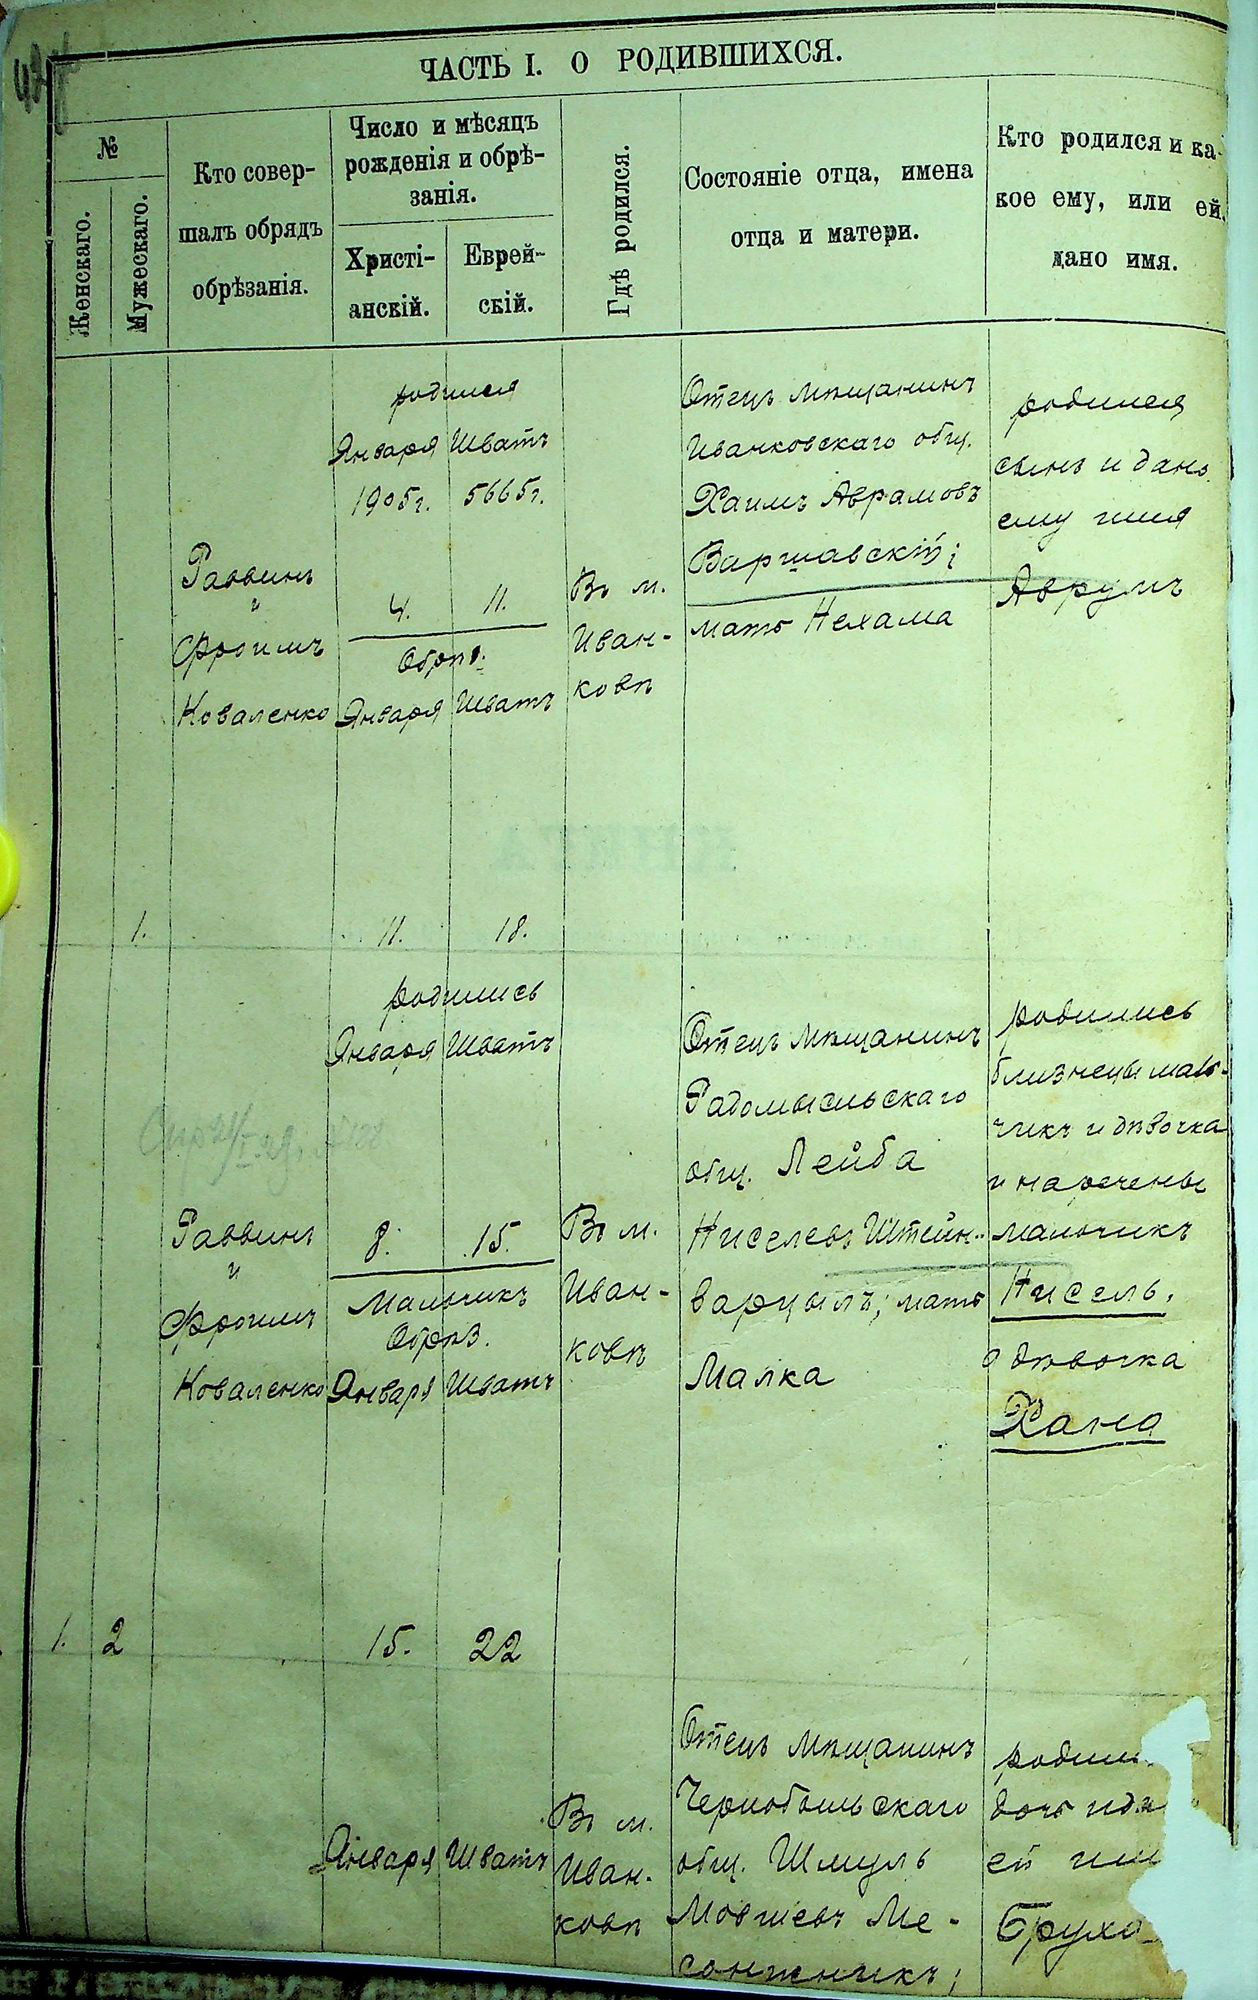 ЧАСТЬ I. О РОДИВШИХСЯ.
№
Женскаго.
Мужескаго.
Кто совер-
шалъ обрядъ
обрѣзанія.
Число и мѣсяцъ
рожденія и обрѣ-
занія.
Христі-
анскій.
Еврей-
скій.
Гдѣ родился.
Состояніе отца, имена
отца и матери.
Кто родился и ка-
кое ему, или ей,
дано имя.
1.
Раввинъ
и
Фроимъ
Коваленко
родился
Января Шватъ
1905г. 5665г.
4. 11.
Обрѣз.
Января Шватъ
11. 18.
Въ м.
Иван-
ковѣ
Отецъ мѣщанинъ
Иванковскаго общ.
Хаимъ Аврамовъ
Варшавскій;
мать Нехама
родился
сынъ и дано
ему имя
Аврумъ
1. 2
Раввинъ
и
Фроимъ
Коваленко
родились
Января Шватъ
8. 15.
Мальчикъ
Обрѣз.
Января Шватъ
15. 22
Въ м.
Иван-
ковѣ
Отецъ мѣщанинъ
Радомысльскаго
общ. Лейба
Ниселевъ Штейн-
варцылъ; мать
Малка
родились
близнецы маль-
чикъ и дѣвочка
и наречены
мальчикъ
Нисель,
а дѣвочка
Хана
Января Шватъ
Въ м.
Иван-
ковѣ
Отецъ мѣщанинъ
Чернобыльскаго
общ. Шмуль
Мовшевъ Ме-
санжникъ;
родил
дочь и да
ей им
Брухо